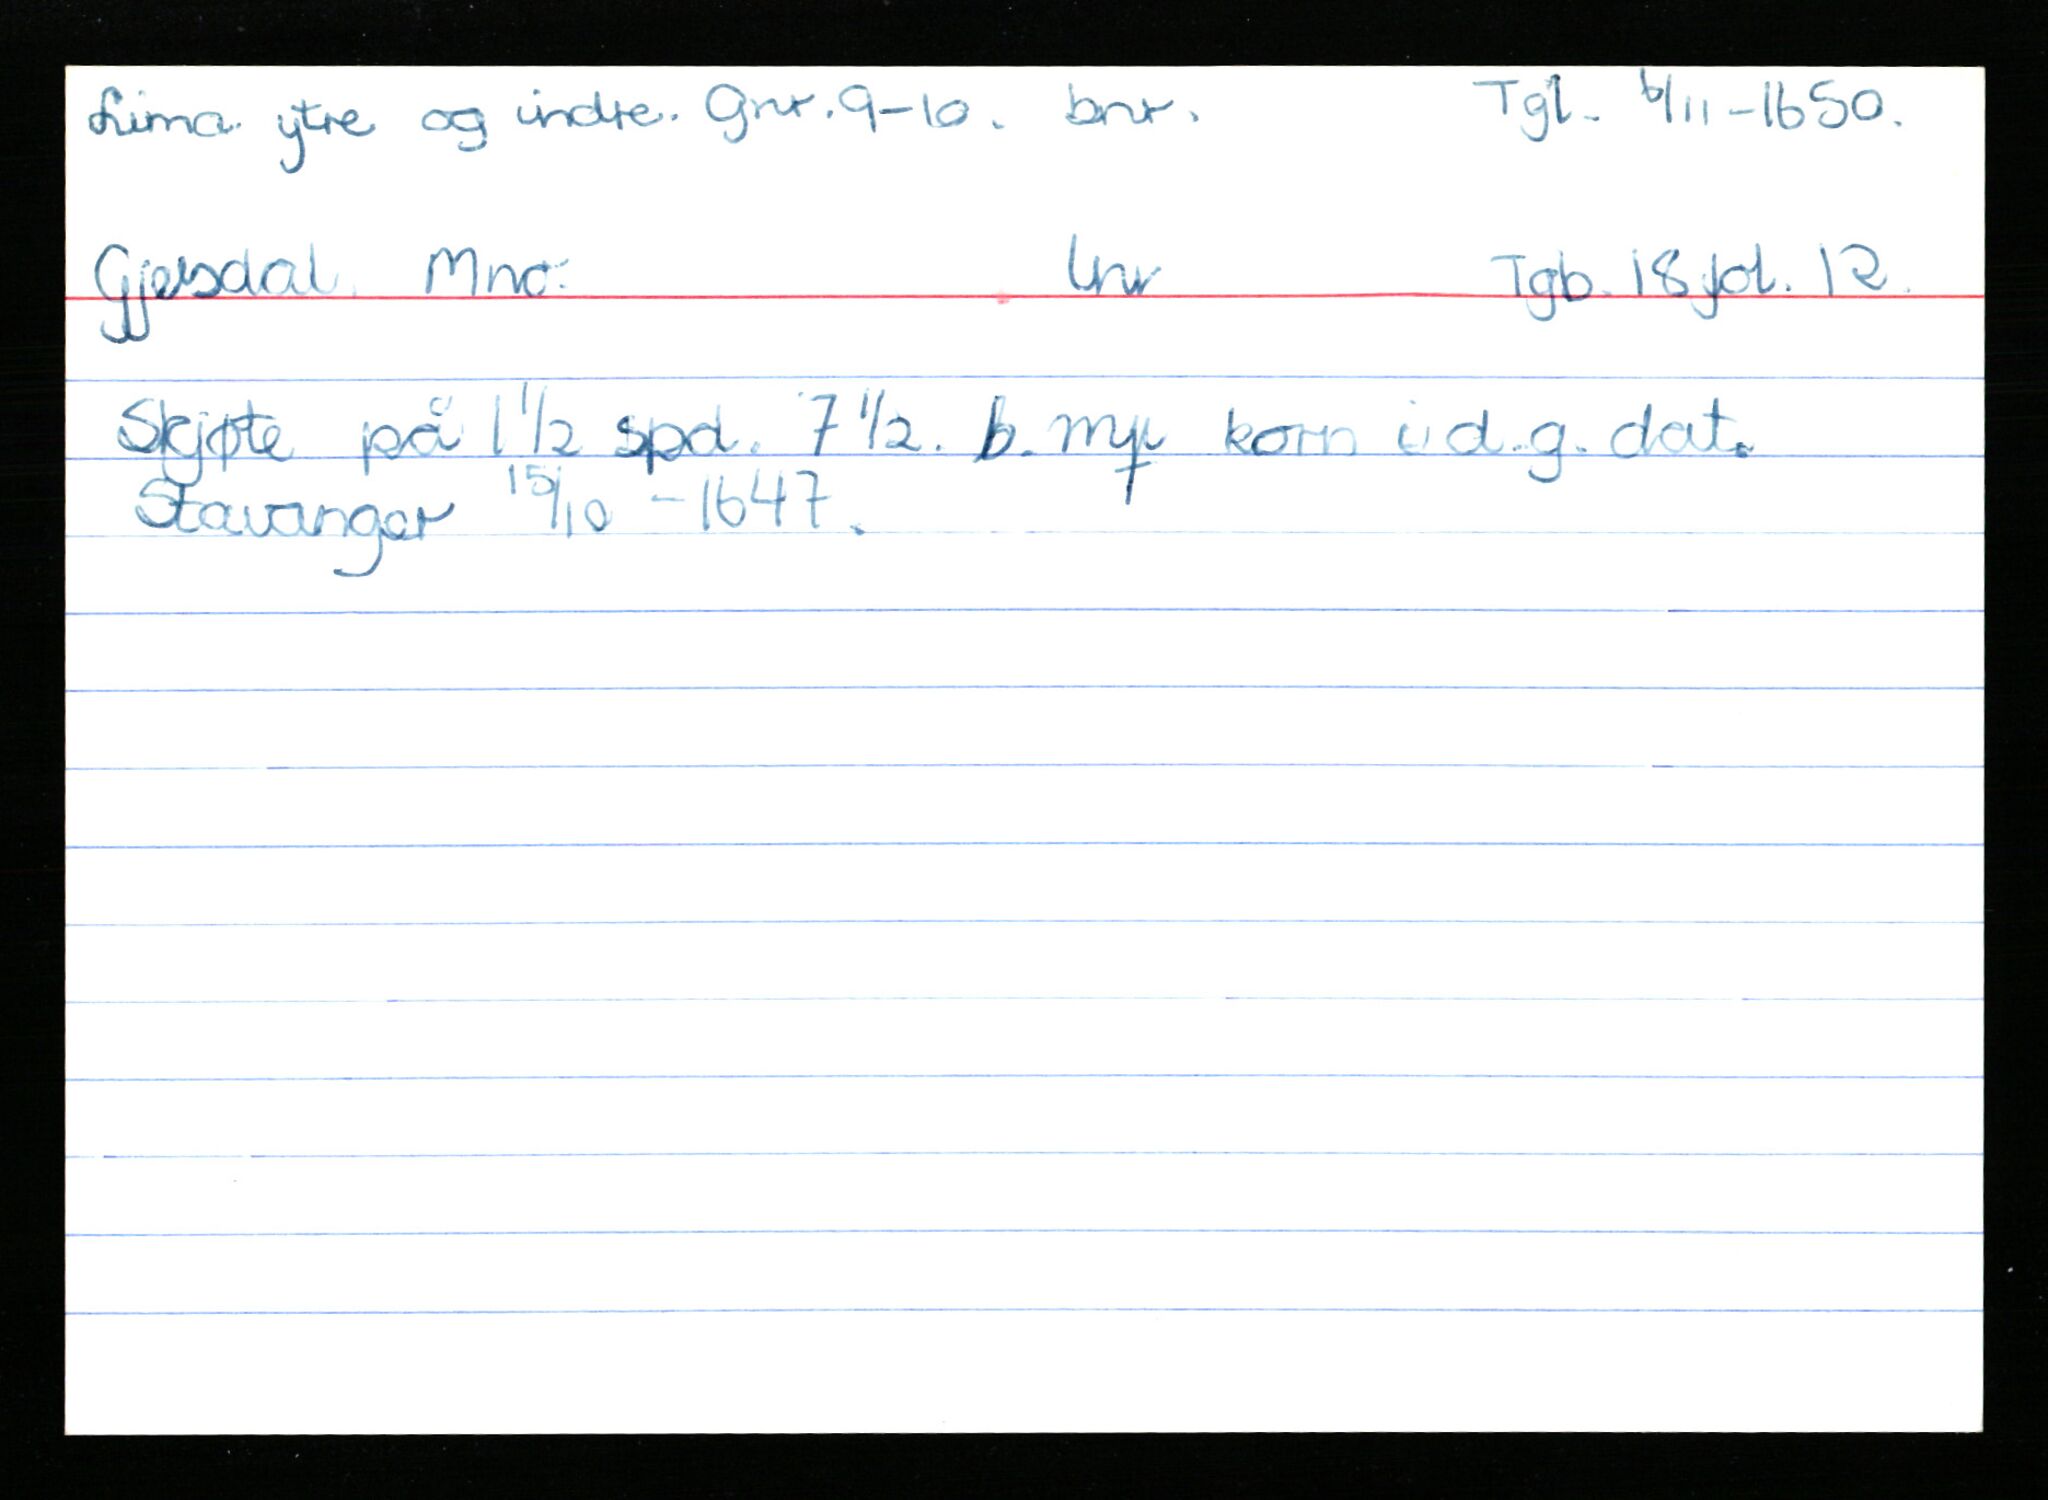 Lima ytre og indre. Gnr. 9-10. bnr. Tgl. 6/11-1650.
Gjesdal. Mno: lnr Tgb. 18 fol. 12.
Skjøte på 1 1/2 spd. 7 1/2. b. mk korn i d.g. dat.
Stavanger 15/10 - 1647.